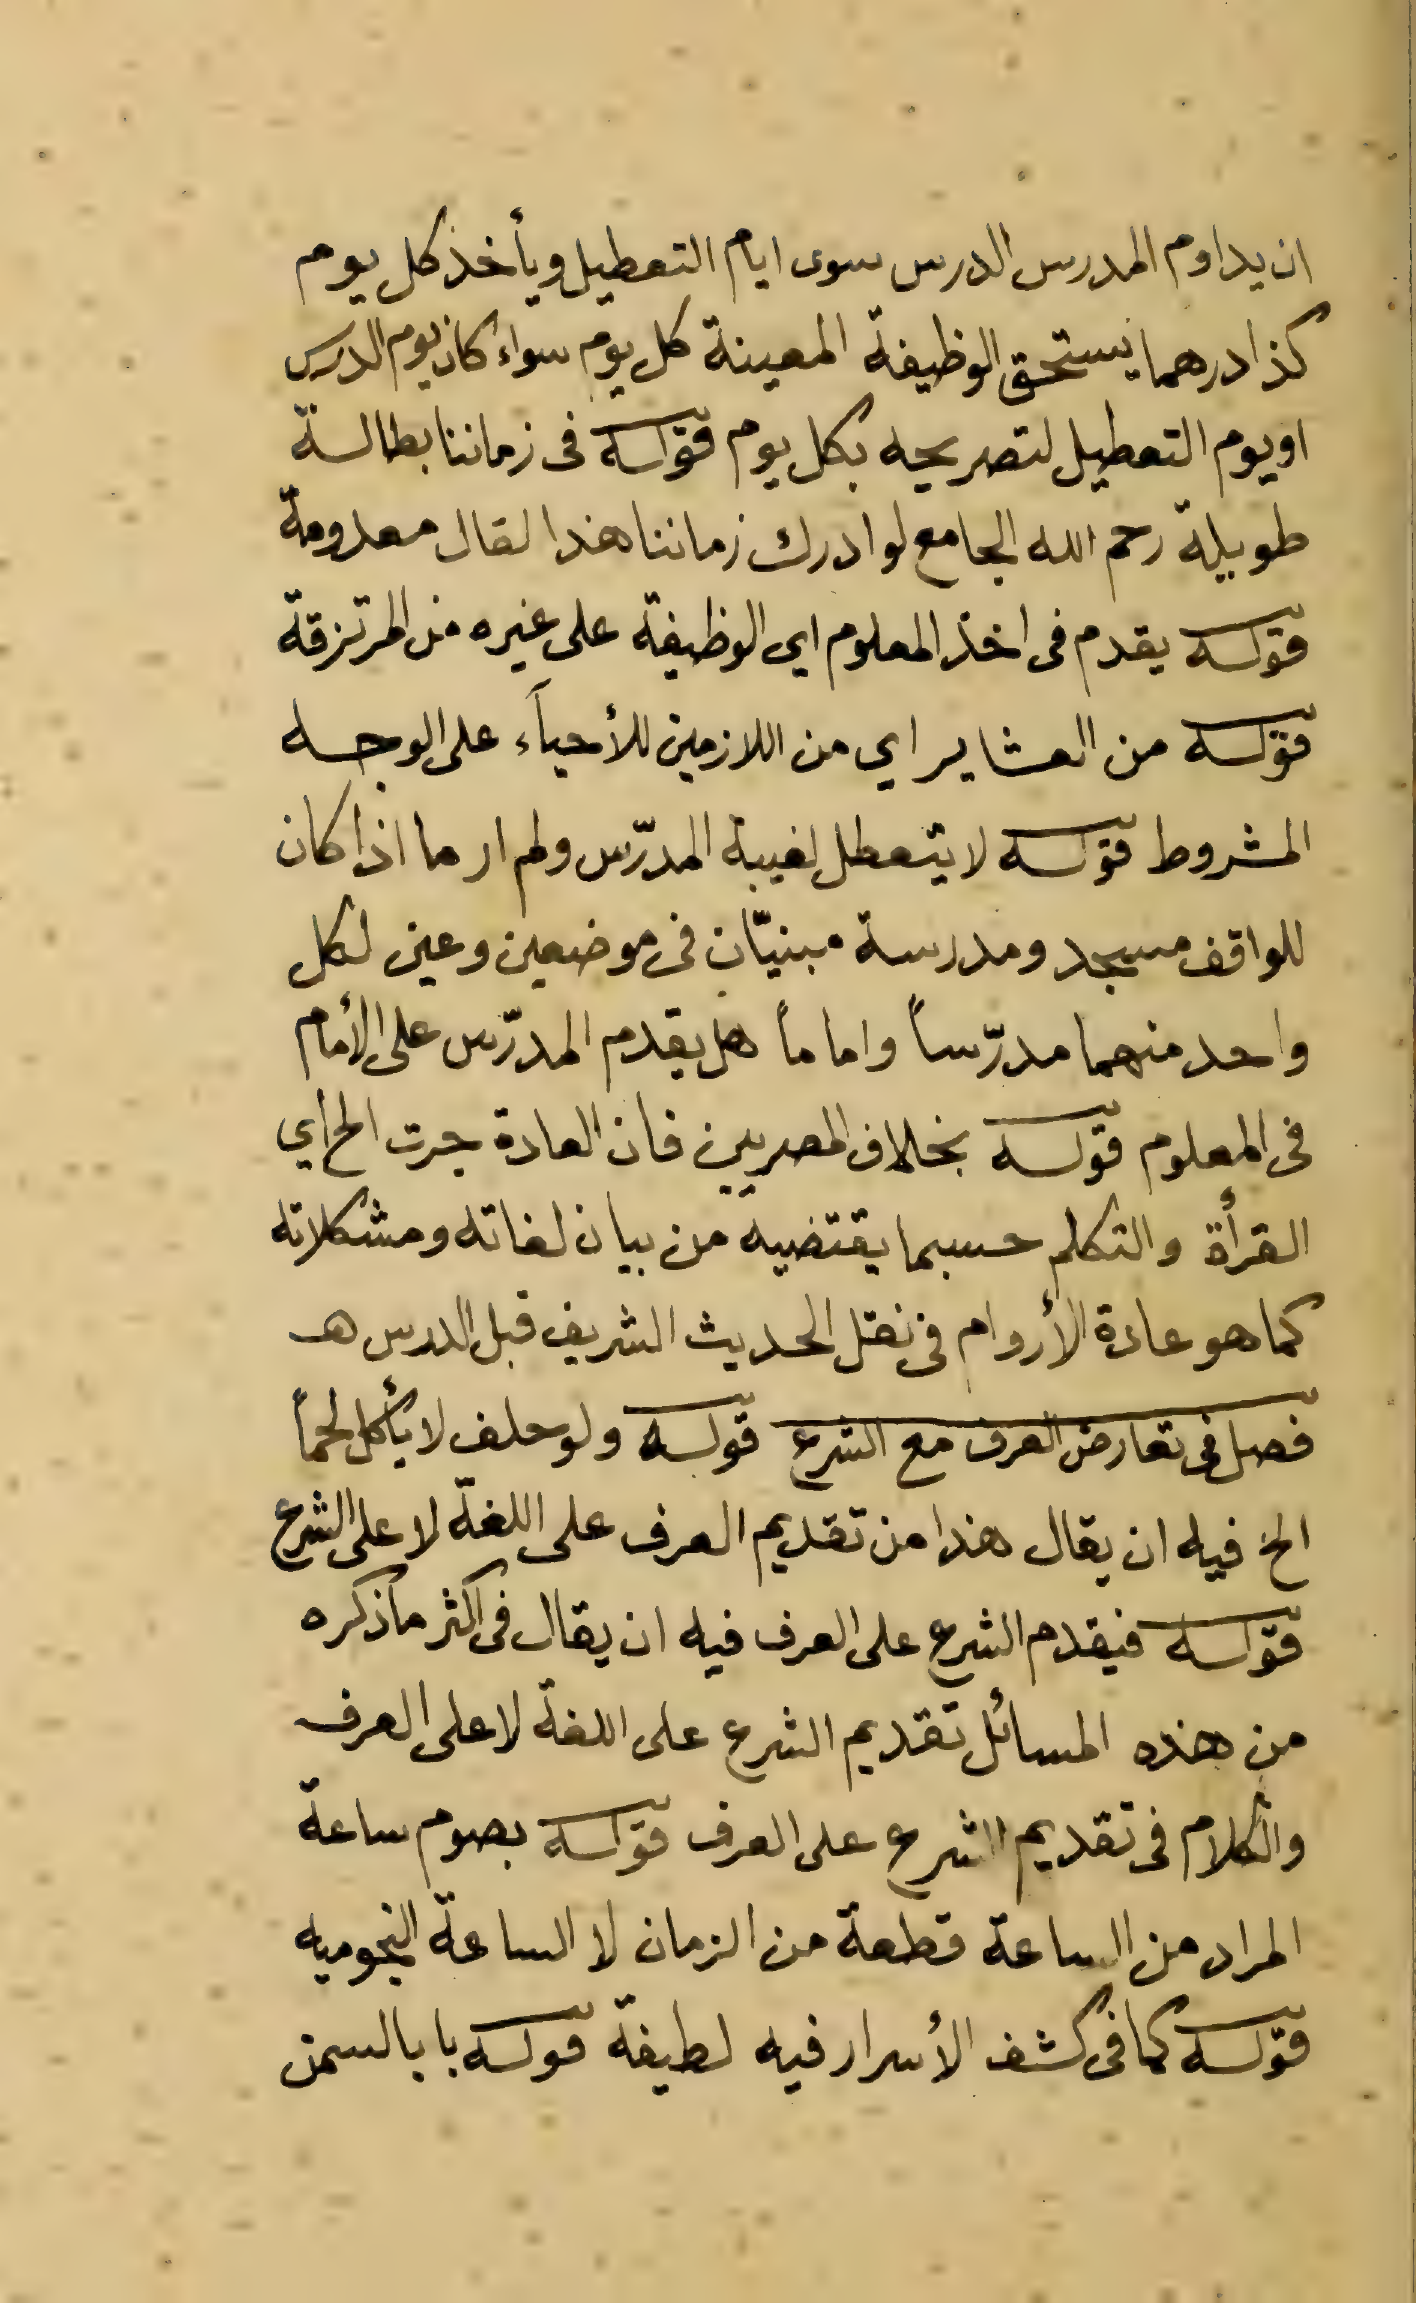 ان يداوم المدرس الدرس سوى ايام التعطيل ويأخذ كل يوم
كذا درهما يستحق الوظيفة المعينة كل يوم سواء كان يوم الدرس
او يوم التعطيل لتصريحه بكل يوم قوله فى زماننا بطالة
طويلة رحم الله الجامع لو ادرك زماننا هذا لقال معدومة
قوله يقدم فى اخذ المعلوم اي الوظيفة على غيره من المرتزقة
قوله من العشاير اي من اللازمين للأحيآء على الوجه
المشروط قوله لا يتعطل لغيبة المدرّس ولم ار ما اذا كان
للواقف مسجد ومدرسة مبنيّان فى موضعين وعين لكل
واحد منهما مدرّساً واماماً هل يقدم المدرّس على الأمام
فى المعلوم قوله بخلاف المصريين فان العادة جرت الخ اي
القرأة والتكلم حسبما يقتضيه من بيان لغاته ومشكلاته
كما هو عادة الأروام فى نقل الحديث الشريف قبل الدرس هـ
فصل فى تعارض العرف مع الشرع قوله ولو حلف لا يأكل لحماً
الخ فيه ان يقال هذا من تقديم العرف على اللغة لا على الشرع
قوله فيقدم الشرع على العرف فيه ان يقال فى اكثر ما ذكره
من هذه المسائل تقديم الشرع على اللغة لا على العرف
والكلام فى تقديم الشرع على العرف قوله بصوم ساعة
المراد من الساعة قطعة من الزمان لا الساعة النجوميه
قوله كما فى كشف الأسرار فيه لطيفة قوله با بالسمن